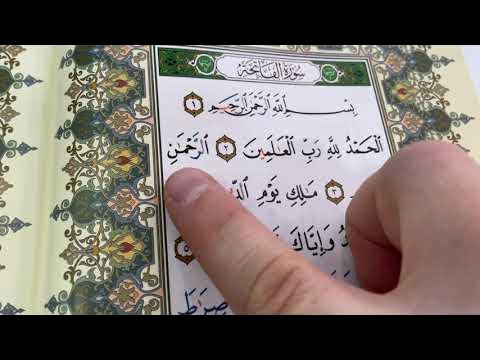 سُورَةُ الْفَاتِحَةِ
بِسْمِ ٱللَّهِ ٱلرَّحْمَٰنِ ٱلرَّحِيمِ ١
ٱلْحَمْدُ لِلَّهِ رَبِّ ٱلْعَٰلَمِينَ ٢ ٱلرَّحْمَٰنِ
٣ مَٰلِكِ يَوْمِ
وَإِيَّاكَ ٥
صِرَٰطَ